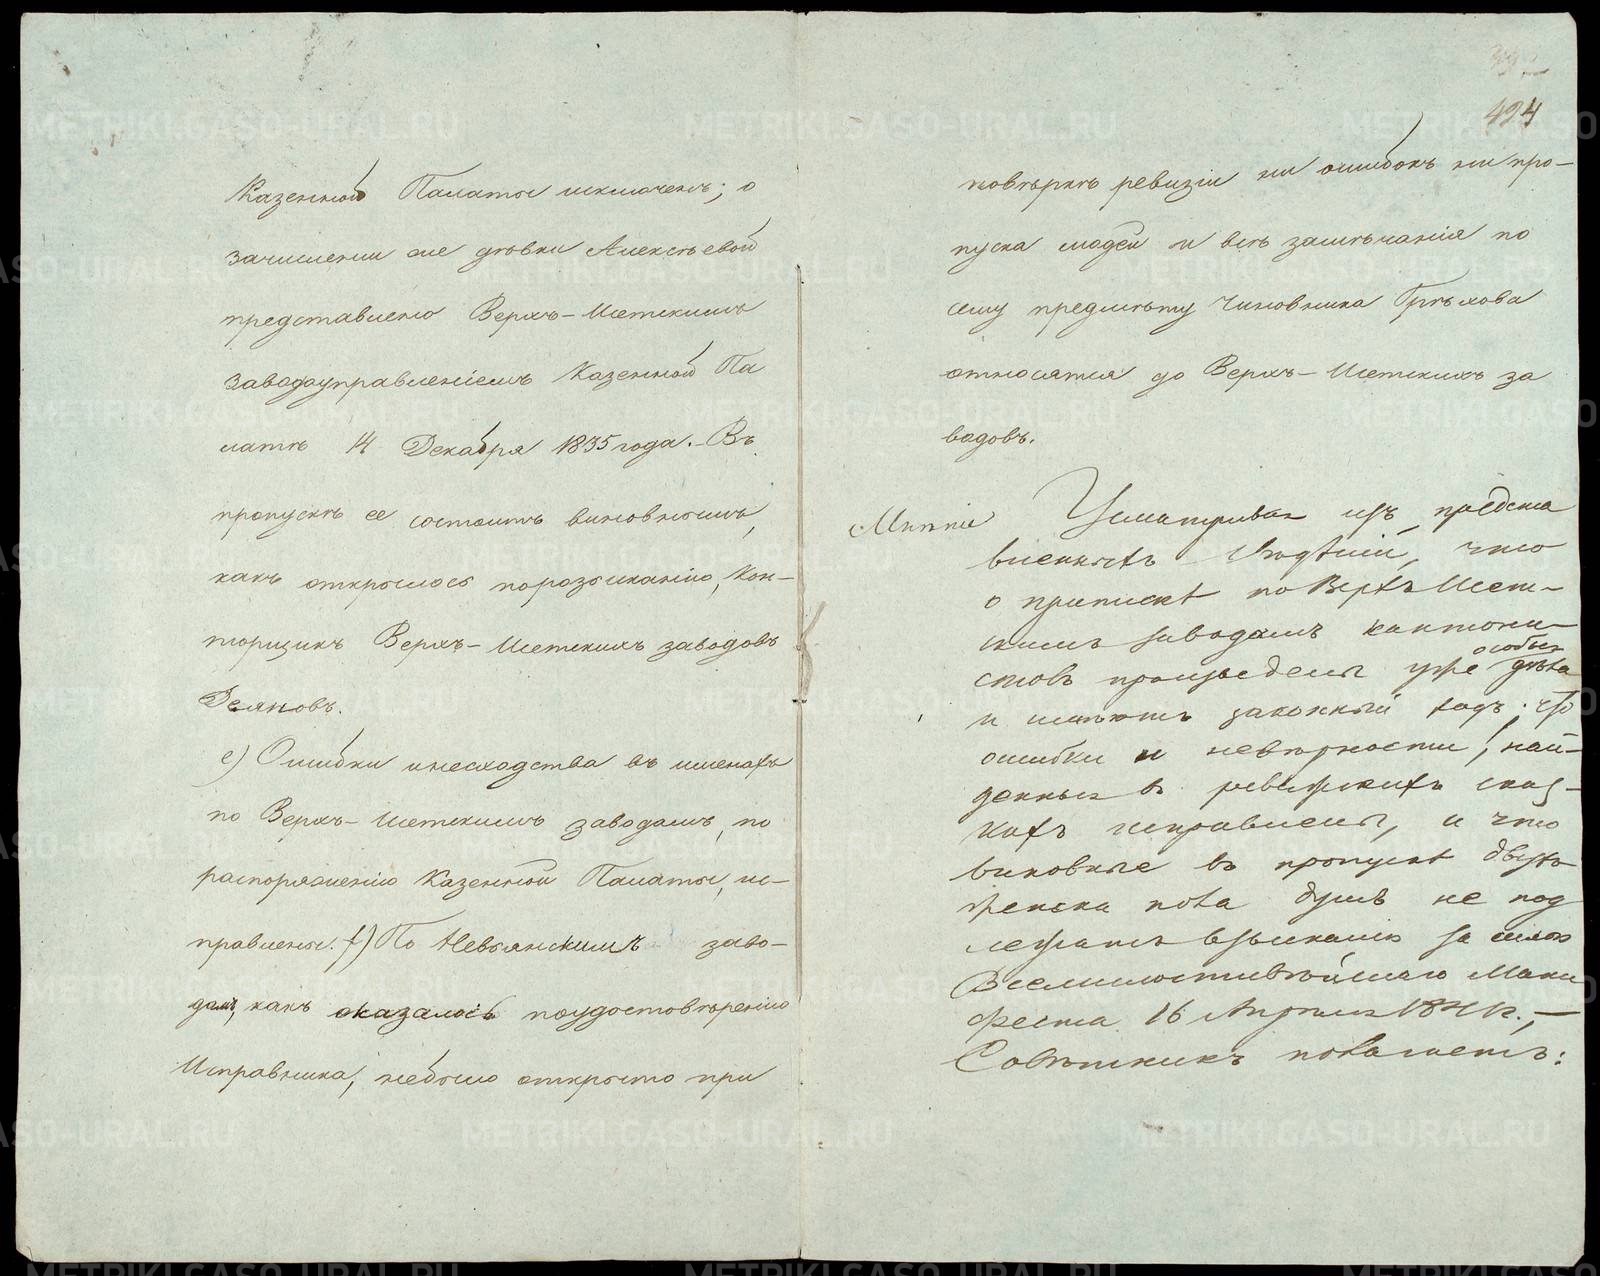 Казенной Палаты исключенъ; о
зачислении же дѣвки Алексѣевой
представлено Верхъ-Исетскимъ
Заводоуправленіемъ Казенной Па
латѣ 14 Декабря 1835 года. Въ
пропускѣ ее состоитъ виновнымъ,
какъ открылось по розысканію, Кон-
торщикъ Верхъ-Исетскихъ заводовъ
Деяновъ.
е) Ошибки и несходства въ именахъ
по Верхъ-Исетскимъ заводамъ, по
распоряженію Казенной Палаты, ис-
правлены. f) По Невьянскимъ заво-
дамъ, какъ оказалось по удостовѣренію
Исправника, не было открыто при
424
повѣркѣ ревизіи ни ошибокъ ни про-
пуска людей и всѣ замѣчанія по
сему предмѣту Чиновника Грѣхова
относятся до Верхъ-Исетскихъ за
водовъ.
Мнѣніе
Усматривая изъ предста
вленныхъ свѣдѣній, что
о припискѣ по Верхъ Исет-
скимъ заводамъ кантони-
стовъ произведены уже особыя дѣла
и имѣютъ законный ходъ; что
ошибки и невѣрности, най-
денныя въ ревизскихъ сказ-
кахъ исправлены, и что
виновные въ пропускѣ двухъ
женска пола душъ не под
лежатъ взысканію за силою
Всемилостивѣйшаго Мани
феста 16 Апрѣля 1841 г., —
Совѣтникъ полагаетъ:
METRIKI.GASO-URAL.RU